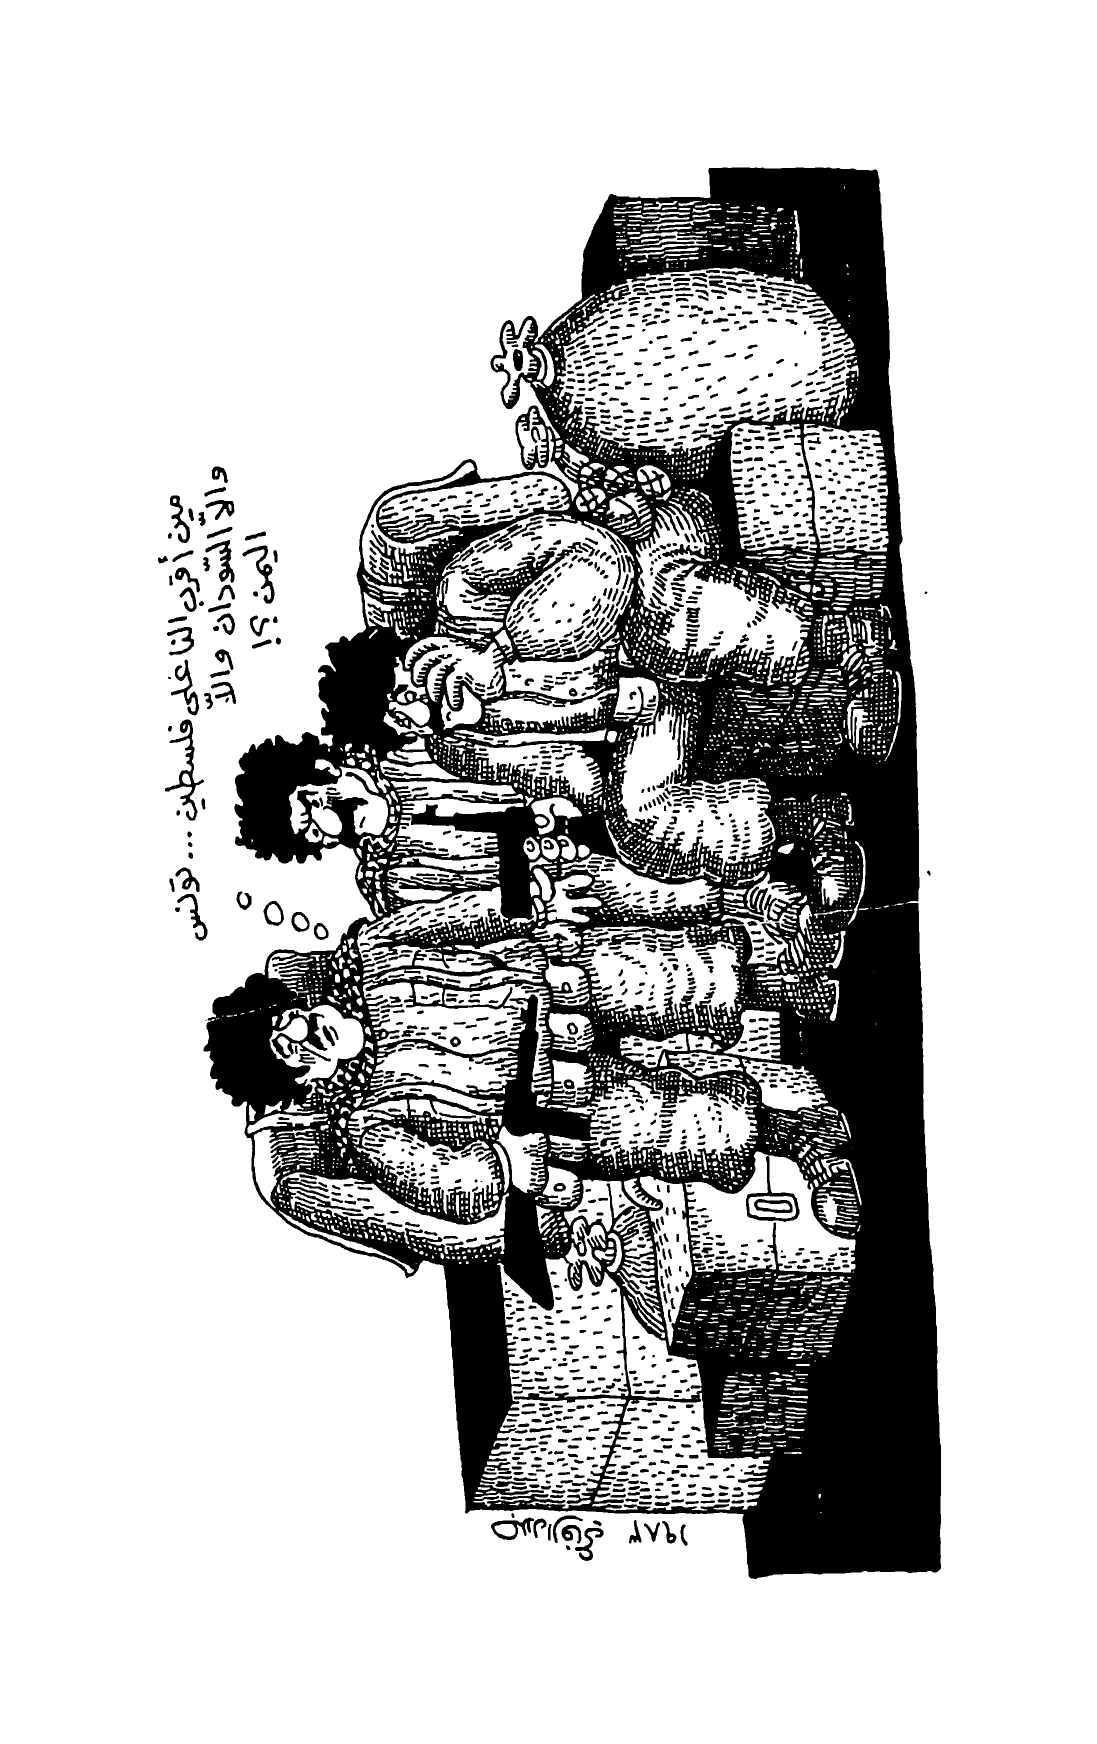 مين أقرب النا على فلسطين ... تونس
والاّ السّودان والاّ
اليمن ؟!
١٩٨٣